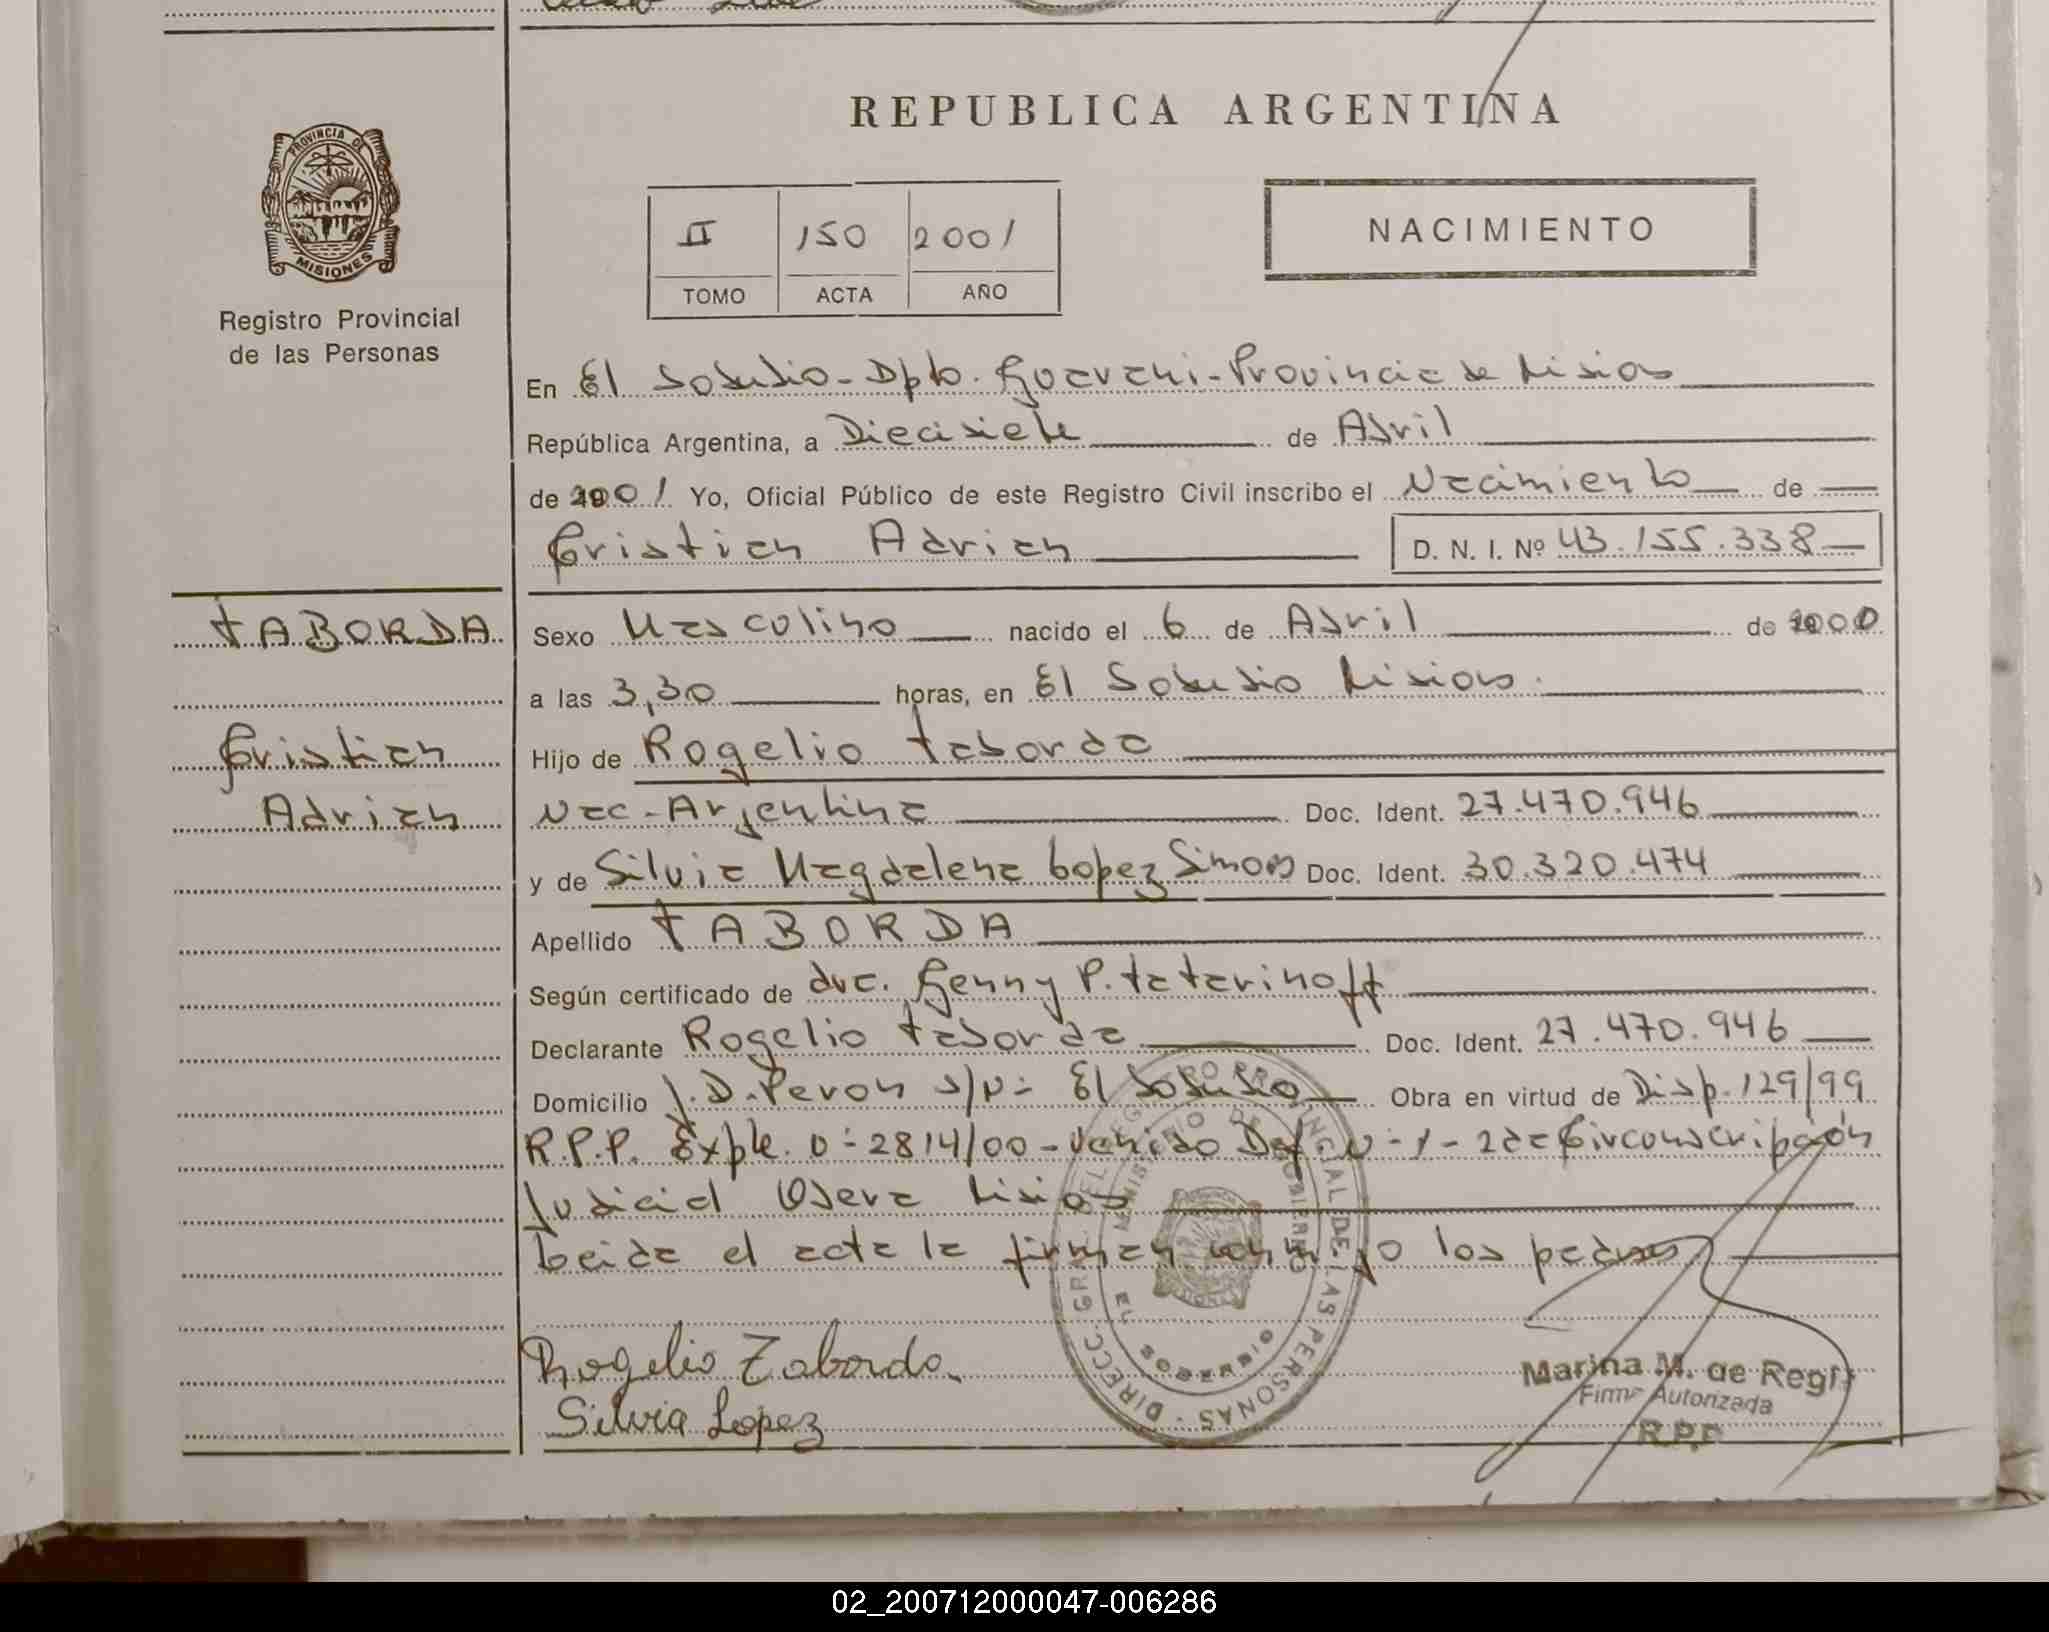 REPUBLICA ARGENTINA
PROVINCIA DE
MISIONES
Registro Provincial
de las Personas
II 150 2001
TOMO ACTA AÑO
NACIMIENTO
En El Soberbio - Dpto. Guarani - Provincia de Misiones
República Argentina, a Diecisiete de Abril
de 2001 Yo, Oficial Público de este Registro Civil inscribo el Nacimiento de
Cristian Adrian D. N. I. Nº 43.155.338
TABORDA
Cristian
Adrian
Sexo Masculino nacido el 6 de Abril de 2000
a las 3,30 horas, en El Soberbio Misiones.
Hijo de Rogelio Taborda
Nac - Argentina Doc. Ident. 27.470.946
y de Silvia Magdalena Lopez Simons Doc. Ident. 30.320.474
Apellido TABORDA
Según certificado de dra. Genny P. Tatarinoff
Declarante Rogelio Taborda Doc. Ident. 27.470.946
Domicilio J.D. Peron s/nº El Soberbio Obra en virtud de Disp. 129/99
R.P.P. Expte. nº 2814/00 - Venido Def. Nº 1 - 2da Circonscripción
Judicial Obera Misiones
Leida el acta la firman conmigo los padres
Rogelio Taborda
Silvia Lopez
DIRECC. GRAL. DEL REGISTRO PROVINCIAL DE LAS PERSONAS
MINISTERIO DE GOBIERNO
EL SOBERBIO
Marina M. de Regis
Firma Autorizada
R.P.P
02_200712000047-006286